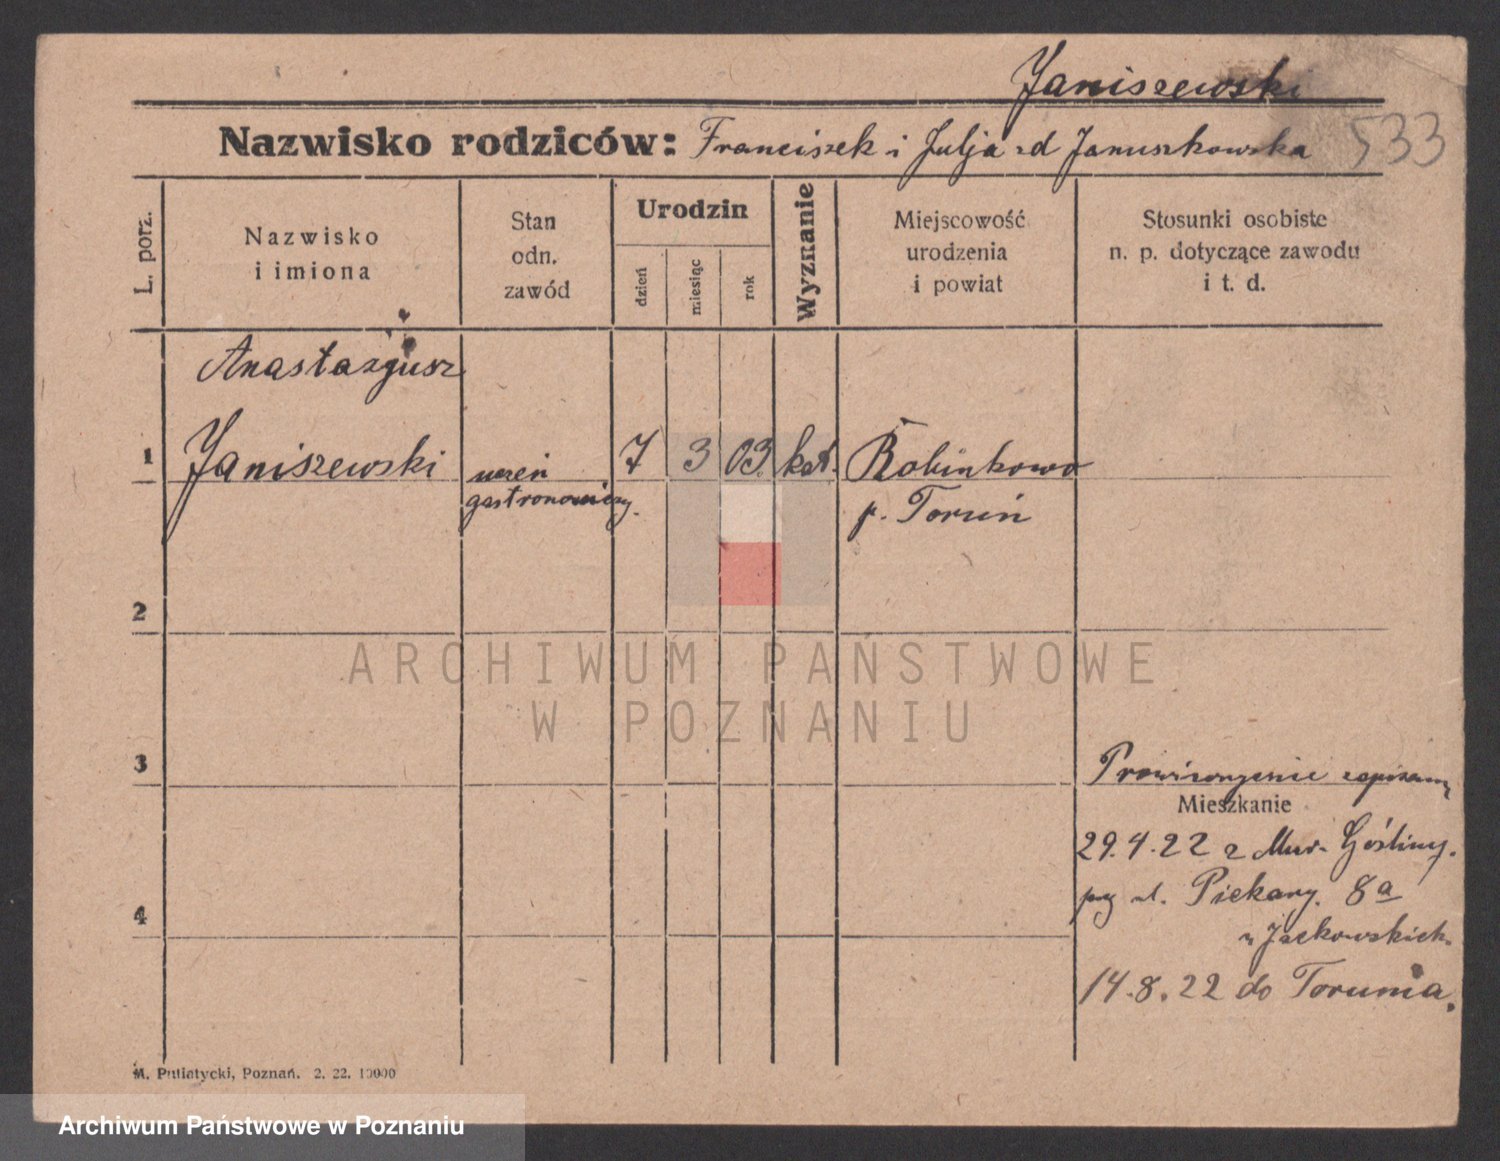 Janiszewski
Nazwisko rodziców: Franciszek i Julja zd Januszkowska
533
L. porz.
Nazwisko
i imiona
Stan
odn.
zawód
Urodzin
dzień
miesiąc
rok
Wyznanie
Miejscowość
urodzenia
i powiat
Stosunki osobiste
n. p. dotyczące zawodu
i t. d.
Anastazyusz
1 Janiszewski uczeń 7 3 03. kat. Robinkowo
gastronomiczy. p. Toruń
2
ARCHIWUM PAŃSTWOWE
W POZNANIU
3
Prowizorycznie zapisany
Mieszkanie
29.4.22 z Mur. Gośliny.
przy ul. Piekary. 8a
4
u Jackowskich.
14.8.22 do Torunia.
M. Putiatycki, Poznań. 2. 22. 10000
Archiwum Państwowe w Poznaniu